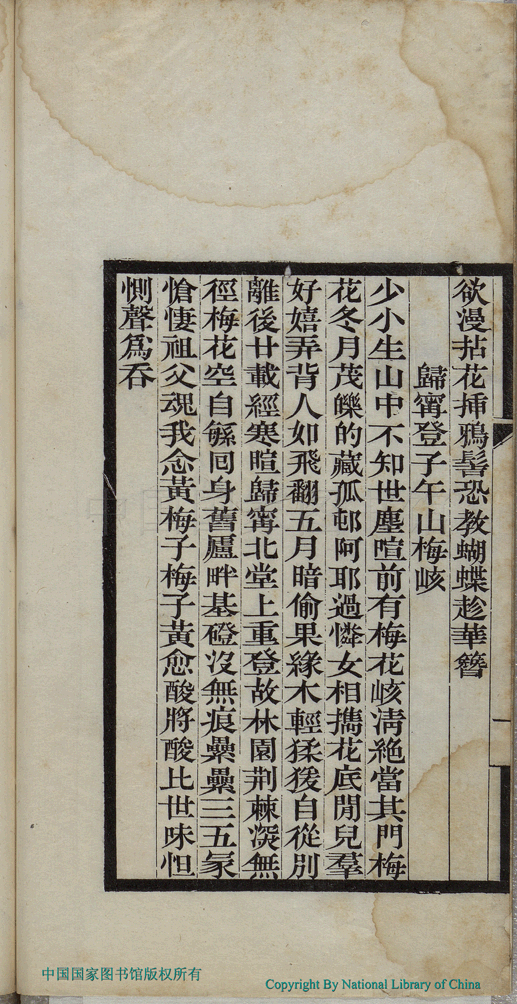 欲漫拈花插鴉髻恐教蝴蝶趁華簪
歸甯登子午山梅峐
少小生山中不知世塵喧前有梅花峐淸絶當其門梅
花冬月茂皪的藏孤邨阿耶過憐女相擕花底閒兒羣
好嬉弄背人如飛翻五月暗偷果緣木輕猱猨自從別
離後廿載經寒暄歸甯北堂上重登故林園荆棘㴱無
徑梅花空自緐回身舊廬畔基磴沒無痕纍纍三五冢
愴悽祖父魂我念黃梅子梅子黃愈酸將酸比世味怛
惻聲爲吞
中国国家图书馆版权所有
Copyright By National Library of China